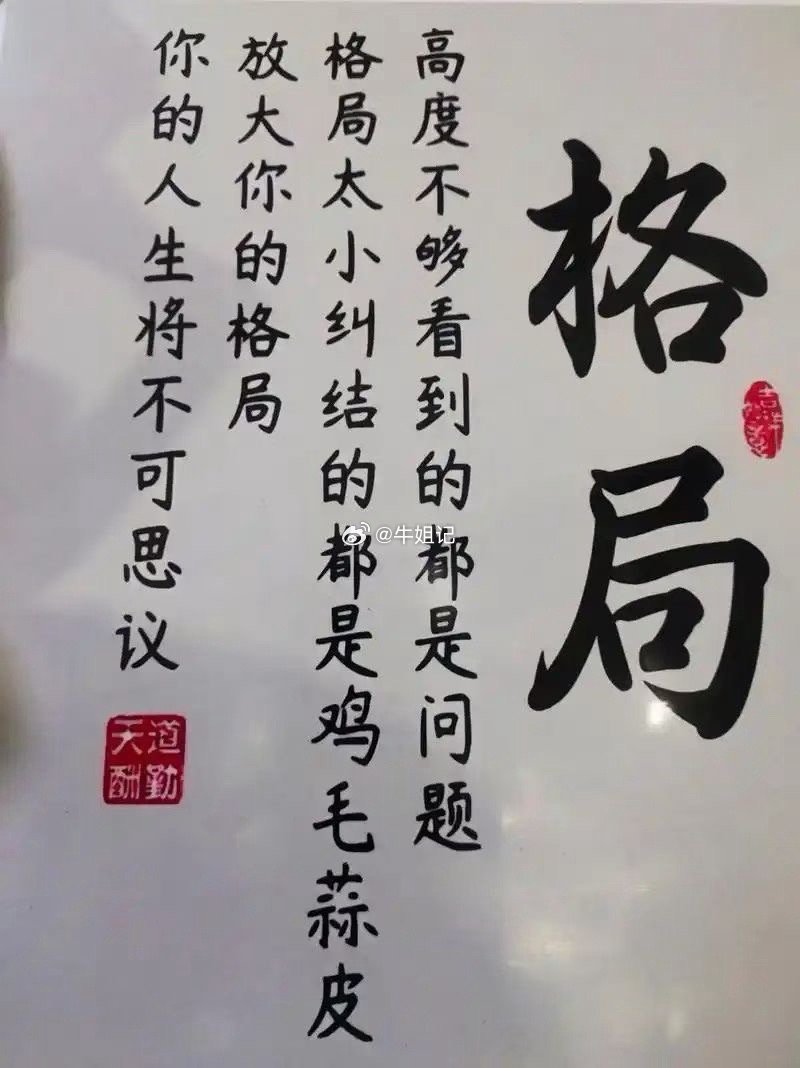 格局
高度不够看到的都是问题
格局太小纠结的都是鸡毛蒜皮
放大你的格局
你的人生将不可思议
天道酬勤
@牛姐记